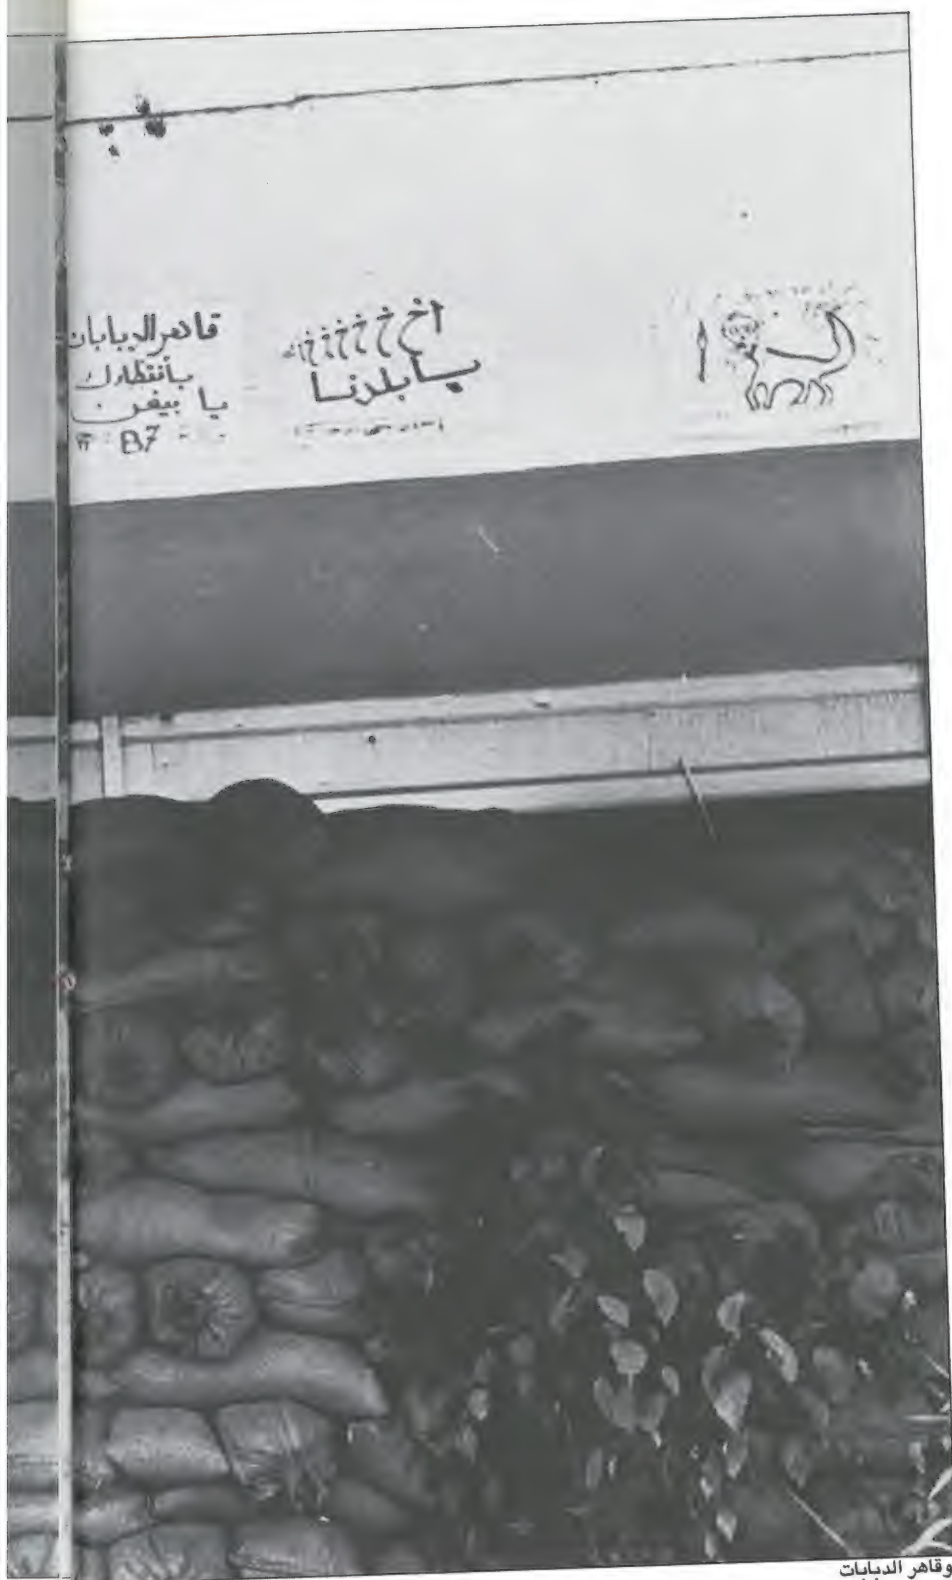 اخ خ خ خ خ خ
يا بلدنا
قاهر الدبابات
بأنتظارك
يا بيغن
B7
وقاهر الدبابات